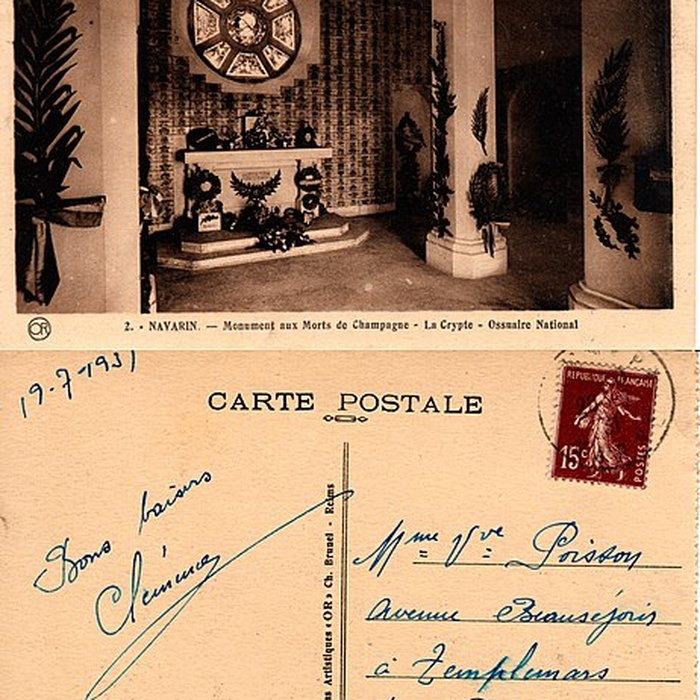 OR
2. - NAVARIN. — Monument aux Morts de Champagne - La Crypte - Ossuaire National
19-7-1931
CARTE POSTALE
REPUBLIQUE FRANÇAISE
15c
POSTES
Bons baisers
Clémence
Artistiques « OR » Ch. Brunel - Reims
Mme Vve Poisson
Avenue Beauséjour
à Templemars